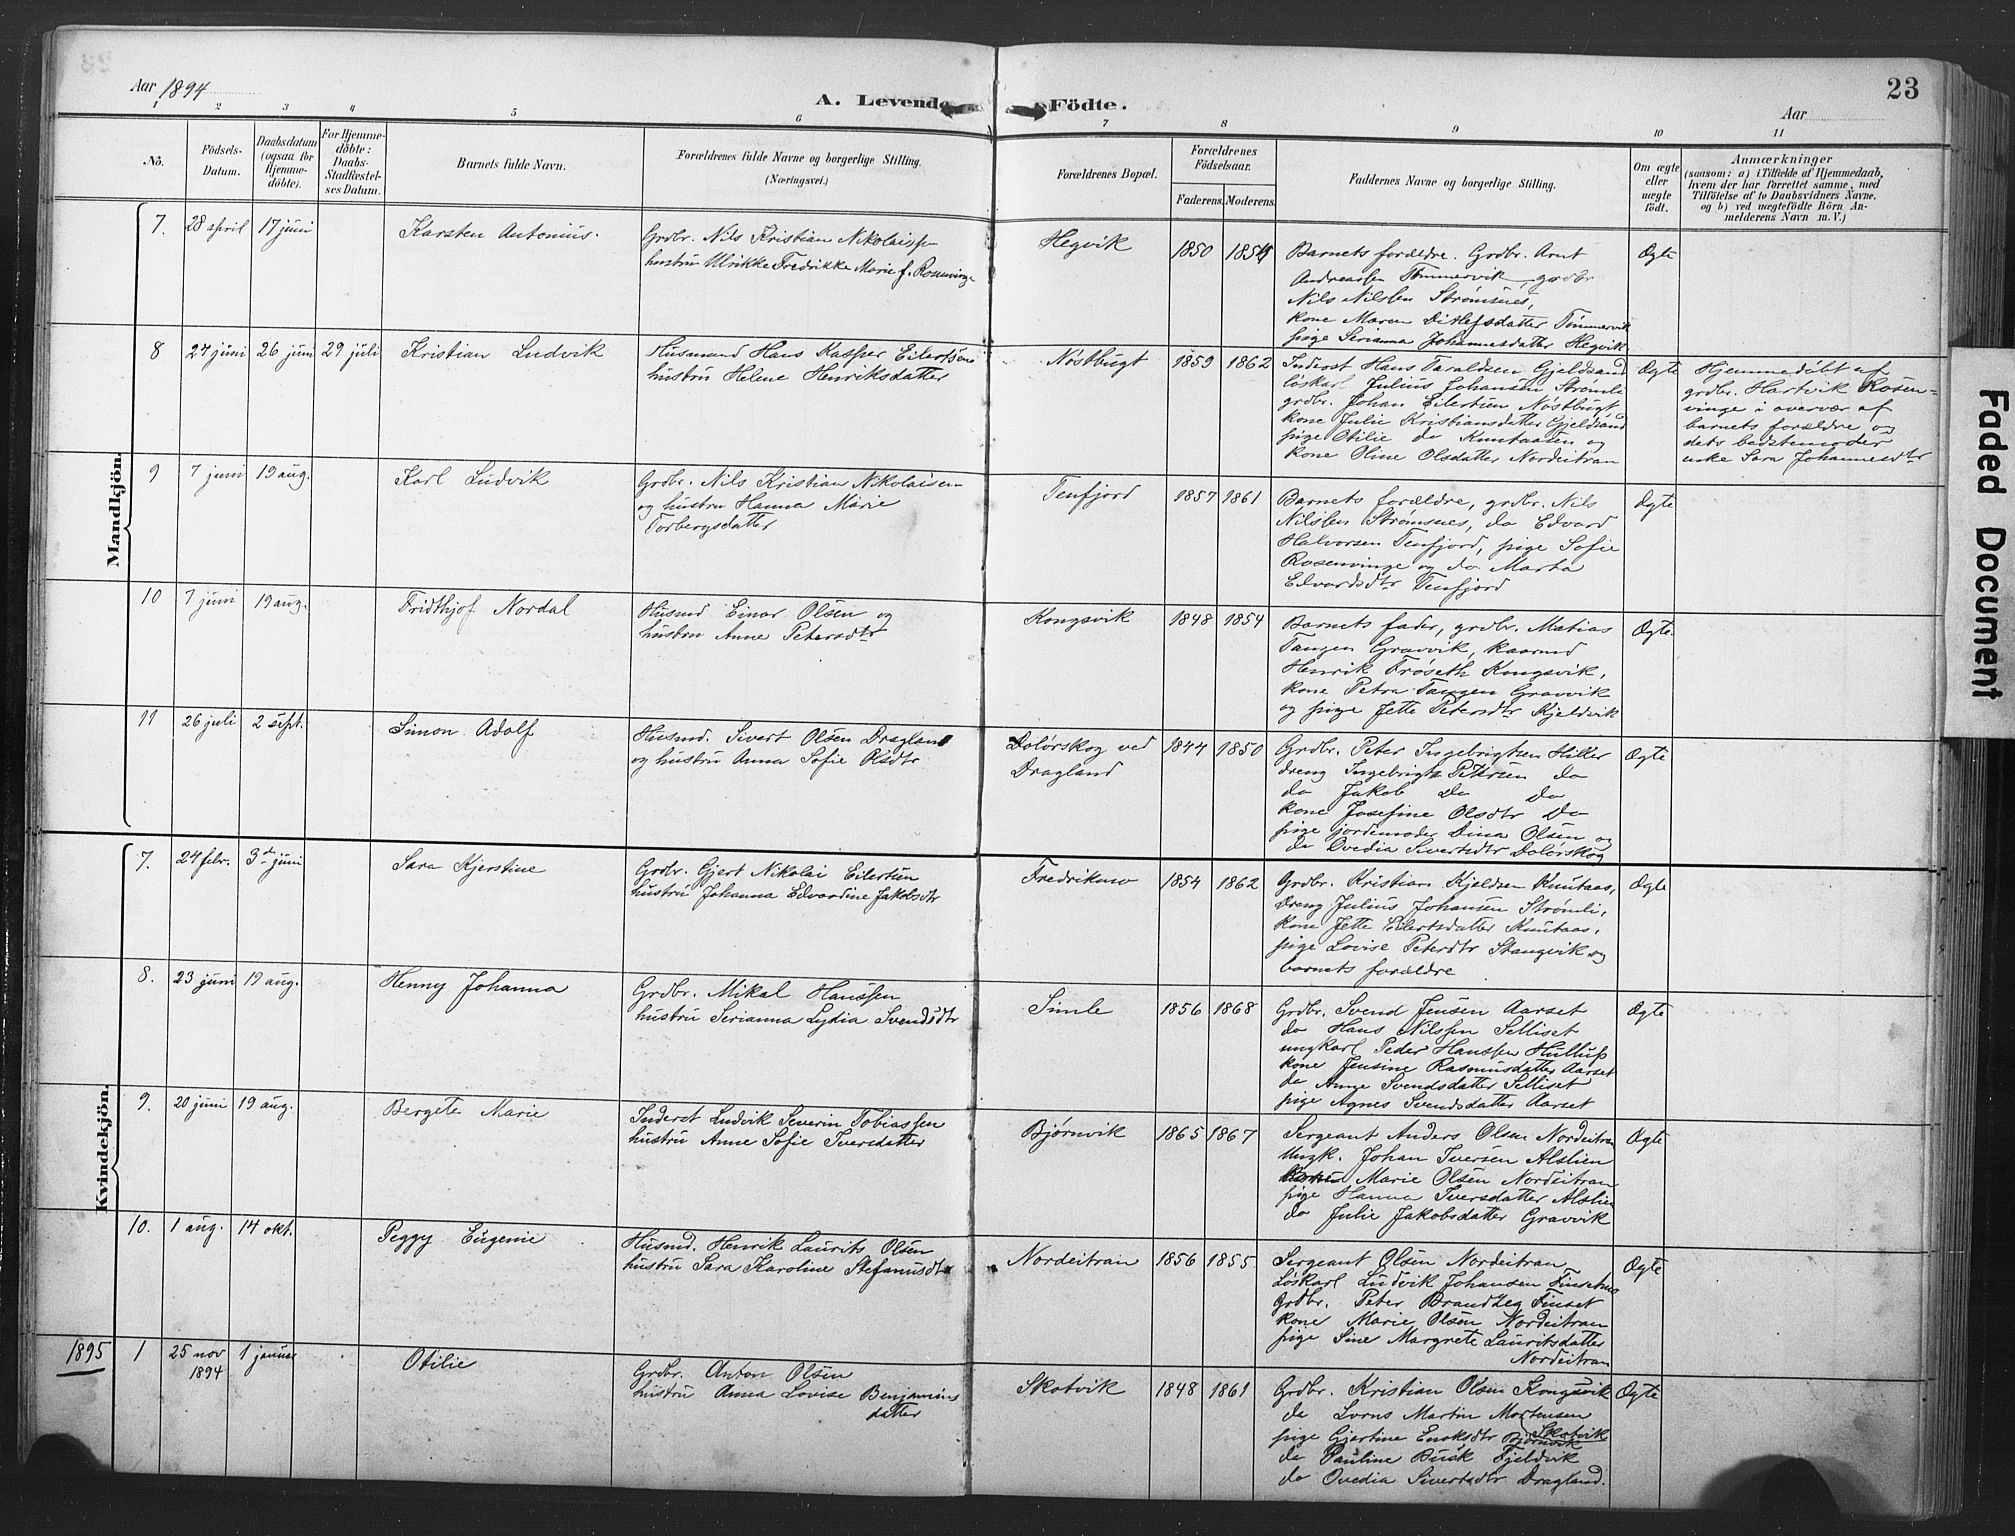 23
Aar 1894
A. Levende Födte.
Aar
1 2 3 4 5 6 7 8 9 10 11
No.
Födsels-Datum.
Daabsdatum (ogsaa for Hjemmedöbte).
For Hjemmedöbte: Daabs-Stadfæstelses Datum.
Barnets fulde Navn.
Forældrenes fulde Navne og borgerlige Stilling. (Næringsvei.)
Forældrenes Bopæl.
Forældrenes Födselsaar.
Faderens. Moderens.
Faddernes Navne og borgerlige Stilling.
Om ægte eller uægte födt.
Anmærkninger
(saasom: a) i Tilfælde af Hjemmedaab,
hvem der har forrettet samme, med
Tilföielse af to Daabsvidners Navne.
og b) ved uægtefödte Börn An-
melderens Navn m. V.)
Mandkjön.
7. 28 april 17 juni Karsten Antonius.
Grdbr. Nils Kristian Nikolaiss
hustru Ulrikke Fredrikke Marie f. Rosenvinge
Hegvik 1850 1854
Barnets forældre. Grdbr. Arnt
Andreassen Tømmervik, grdbr
Nils Nilssen Strømsnes,
kone Maren Ditlefsdatter Tømmervik
pige Serianna Johannesdatter Hegvik
Ægte
8 24 juni 26 juni 29 juli Kristian Ludvik
Husmand Hans Kasper Eilertsen
hustru Helene Henriksdatter
Nøstbugt 1859 1862
Inderst Hans Taraldsen Gjeldsand
løskarl Julius Johansen Strømli
grdbr. Johan Eilertsen Nøstbugt
kone Julie Kristiansdatter Gjeldsand
pige Otilie do Knutaasen og
kone Oline Olsdatter Nordeitran
Ægte
Hjemmedøbt af
grdbr. Hartvik Rosen-
vinge i overvær af
barnets forældre og
dets bedstemoder
enke Sara Johannesdtr
9 7 juni 19 aug. Karl Ludvik
Grdbr. Nils Kristian Nikolaisen
og hustru Hanna Marie
Torbergsdatter
Tenfjord 1857 1861
Barnets forældre, grdbr. Nils
Nilssen Strømsnes, do Edvard
Halvorsen Tenfjord, pige Sofie
Rosenvinge og do Marta
Edvardsdtr Tenfjord
Ægte
10 7 juni 19 aug. Fridthjof Nordal
Husmd Einar Olsen og
hustru Anne Petersdtr
Kongsvik 1848 1854
Barnets fader, grdbr. Matias
Tangen Gravvik, kaarmd
Henrik Frøseth Kongsvik,
kone Petra Tangen Gravvik
og pige Jette Petersdtr Kjeldvik
Ægte.
11 26 juli 2 sept. Simon Adolf
Husmd. Sivert Olsen Dragland
og hustru Anna Sofie Olsdtr
Dolørskog ved
Dragland
1844 1850
Grdbr. Peter Ingebrigtsen Hiller
dreng Ingebrigt Petersen do
do Jakob Do Do
kone Josefine Olsdtr Do
pige jordemoder Dina Olsen og
do Ovedia Sivertsdtr Dolørskog
Ægte
Kvindekjön.
7. 24 febr. 3de juni Sara Kjerstine
Grdbr. Gjert Nikolai Eilertsen
hustru Johanna Edvardine Jakobsdtr
Fredriksmo 1854 1862
Grdbr. Kristian Kjeldsen Knutaas,
Dreng Julius Johansen Strømli,
kone Jette Eilertsdatter Knutaas,
pige Lovise Petersdtr Stangvik og
barnets forældre
Ægte
8. 23 juni 19 aug. Henny Johanna
Grdbr. Mikal Hanssen
hustru Serianna Lydia Svendsdtr
Simle 1856 1868
Grdbr. Svend Jensen Aarset
do Hans Nilssen Selliset
ungkarl Peder Hanssen Hullup
kone Jensine Rasmusdatter Aarset
do Anne Svendsdatter Selliset
pige Agnes Svendsdatter Aarset
Ægte
9. 20 juni 19 aug. Bergete Marie
Inderst Ludvik Severin Tobiassen
hustru Anne Sofie Iversdatter
Bjørnvik 1865 1867
Sergeant Anders Olsen Nordeitran
Ungk. Johan Iversen Alslien
Marie Olsen Nordeitran
pige Hanna Iversdatter Alslien
do Julie Jakobsdatter Gravvik
Ægte
10. 1 aug. 14 okt. Peggy Eugenie
Husmd. Henrik Laurits Olsen
hustru Sara Karoline Stefanusdtr
Nordeitran 1856 1855
Sergeant Olsen Nordeitran
Løskarl Ludvik Johansen Finsetmo
Grdbr. Peter Brandzeg Finset
kone Marie Olsen Nordeitran
pige Sine Margrete Lauritsdatter
Nordeitran
Ægte
1895
1 25 nov 1894 1 januar Otilie
Grdbr. Anton Olsen
hustru Anna Lovise Benjamins
datter
Skotvik 1848 1861
Grdbr. Kristian Olsen Kongsvik
do Lorns Martin Mortensen
Skotvik
pige Gjertine Enoksdtr Bjørnvik
do Pauline Busk Fjeldvik
do Ovedia Sivertsdtr Dragland.
Ægte
Faded Document